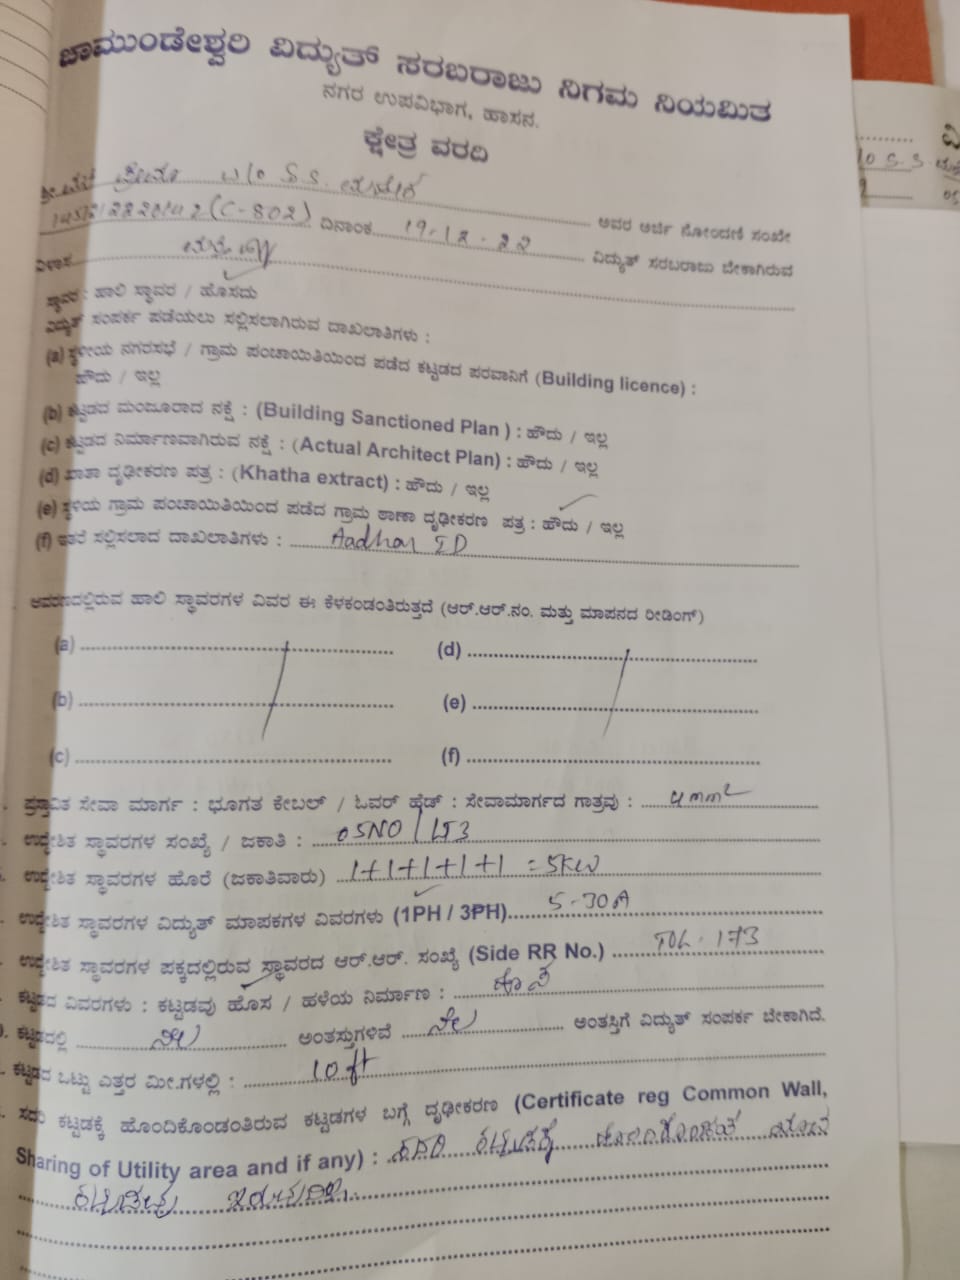 ಚಾಮುಂಡೇಶ್ವರಿ ವಿದ್ಯುತ್ ಸರಬರಾಜು ನಿಗಮ ನಿಯಮಿತ
ನಗರ ಉಪವಿಭಾಗ, ಹಾಸನ.
ಕ್ಷೇತ್ರ ವರದಿ
W/o S.S. ಅವರ ಅರ್ಜಿ ನೋಂದಣಿ ಸಂಖ್ಯೇ
(C-802) ದಿನಾಂಕ 19-12-22 ವಿದ್ಯುತ್ ಸರಬರಾಜು ಬೇಕಾಗಿರುವ
ವಿಳಾಸ
ಸ್ಥಾವರ : ಹಾಲಿ ಸ್ಥಾವರ / ಹೊಸದು
ವಿದ್ಯುತ್ ಸಂಪರ್ಕ ಪಡೆಯಲು ಸಲ್ಲಿಸಲಾಗಿರುವ ದಾಖಲಾತಿಗಳು :
(a) ಸ್ಥಳೀಯ ನಗರಸಭೆ / ಗ್ರಾಮ ಪಂಚಾಯಿತಿಯಿಂದ ಪಡೆದ ಕಟ್ಟಡದ ಪರವಾನಿಗೆ (Building licence) :
ಹೌದು / ಇಲ್ಲ
(b) ಕಟ್ಟಡದ ಮಂಜೂರಾದ ನಕ್ಷೆ : (Building Sanctioned Plan ) : ಹೌದು / ಇಲ್ಲ
(c) ಕಟ್ಟಡದ ನಿರ್ಮಾಣವಾಗಿರುವ ನಕ್ಷೆ : (Actual Architect Plan) : ಹೌದು / ಇಲ್ಲ
(d) ಖಾತಾ ದೃಢೀಕರಣ ಪತ್ರ : (Khatha extract) : ಹೌದು / ಇಲ್ಲ
(e) ಸ್ಥಳಿಯ ಗ್ರಾಮ ಪಂಚಾಯಿತಿಯಿಂದ ಪಡೆದ ಗ್ರಾಮ ಠಾಣಾ ದೃಢೀಕರಣ ಪತ್ರ : ಹೌದು / ಇಲ್ಲ
(f) ಇತರೆ ಸಲ್ಲಿಸಲಾದ ದಾಖಲಾತಿಗಳು : Aadhar ID
ಆವರಣದಲ್ಲಿರುವ ಹಾಲಿ ಸ್ಥಾವರಗಳ ವಿವರ ಈ ಕೆಳಕಂಡಂತಿರುತ್ತದೆ (ಆರ್.ಆರ್.ನಂ. ಮತ್ತು ಮಾಪನದ ರೀಡಿಂಗ್)
(a) (d)
(b) (e)
(c) (f)
ಪ್ರಸ್ತಾವಿತ ಸೇವಾ ಮಾರ್ಗ : ಭೂಗತ ಕೇಬಲ್ / ಓವರ್ ಹೆಡ್ : ಸೇವಾಮಾರ್ಗದ ಗಾತ್ರವು : 4mm²
ಉದ್ದೇಶಿತ ಸ್ಥಾವರಗಳ ಸಂಖ್ಯೆ / ಜಕಾತಿ : 05NO / LT3
ಉದ್ದೇಶಿತ ಸ್ಥಾವರಗಳ ಹೊರೆ (ಜಕಾತಿವಾರು) 1+1+1+1+1 = 5KW
ಉದ್ದೇಶಿತ ಸ್ಥಾವರಗಳ ವಿದ್ಯುತ್ ಮಾಪಕಗಳ ವಿವರಗಳು (1PH / 3PH) 5-30A
ಉದ್ದೇಶಿತ ಸ್ಥಾವರಗಳ ಪಕ್ಕದಲ್ಲಿರುವ ಸ್ಥಾವರದ ಆರ್.ಆರ್. ಸಂಖ್ಯೆ (Side RR No.) TOL-173
ಕಟ್ಟಡದ ವಿವರಗಳು : ಕಟ್ಟಡವು ಹೊಸ / ಹಳೆಯ ನಿರ್ಮಾಣ :
ಕಟ್ಟಡದಲ್ಲಿ ನೆಲ ಅಂತಸ್ತುಗಳಿವೆ ನೆಲ ಅಂತಸ್ತಿಗೆ ವಿದ್ಯುತ್ ಸಂಪರ್ಕ ಬೇಕಾಗಿದೆ.
ಕಟ್ಟಡದ ಒಟ್ಟು ಎತ್ತರ ಮೀ.ಗಳಲ್ಲಿ : 10 ft
ಸದರಿ ಕಟ್ಟಡಕ್ಕೆ ಹೊಂದಿಕೊಂಡಂತಿರುವ ಕಟ್ಟಡಗಳ ಬಗ್ಗೆ ದೃಢೀಕರಣ (Certificate reg Common Wall,
Sharing of Utility area and if any) : ಸದರಿ ಕಟ್ಟಡಕ್ಕೆ ಹೊಂದಿಕೊಂಡಂತೆ ಯಾವ
ಕಟ್ಟಡವು ಇರುವುದಿಲ್ಲ.